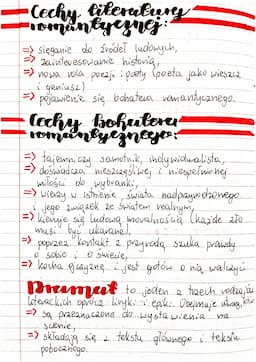 Cechy literatury
romantycznej:
=> sięganie do źródeł ludowych,
=> zainteresowanie historią,
=> nowa rola poezji i poety (poeta jako wieszcz
i geniusz)
=> pojawienie się bohatera romantycznego.
Cechy bohatera
romantycznego:
=> tajemniczy samotnik, indywidualista,
=> doświadcza nieszczęśliwej i niespełnionej
miłości do wybranki,
=> wierzy w istnienie świata nadprzyrodzonego
i jego związek ze światem realnym,
=> kieruje się ludową moralnością (każde zło
musi być ukarane),
=> poprzez kontakt z przyrodą szuka prawdy
o sobie i o świecie,
=> kocha ojczyznę i jest gotów o nią walczyć
Dramat to jeden z trzech rodzajów
literackich oprócz liryki i epiki. Obejmuje utwory, które
=> są przeznaczone do wystawienia na
scenie,
=> składają się z tekstu głównego i tekstu
pobocznego.